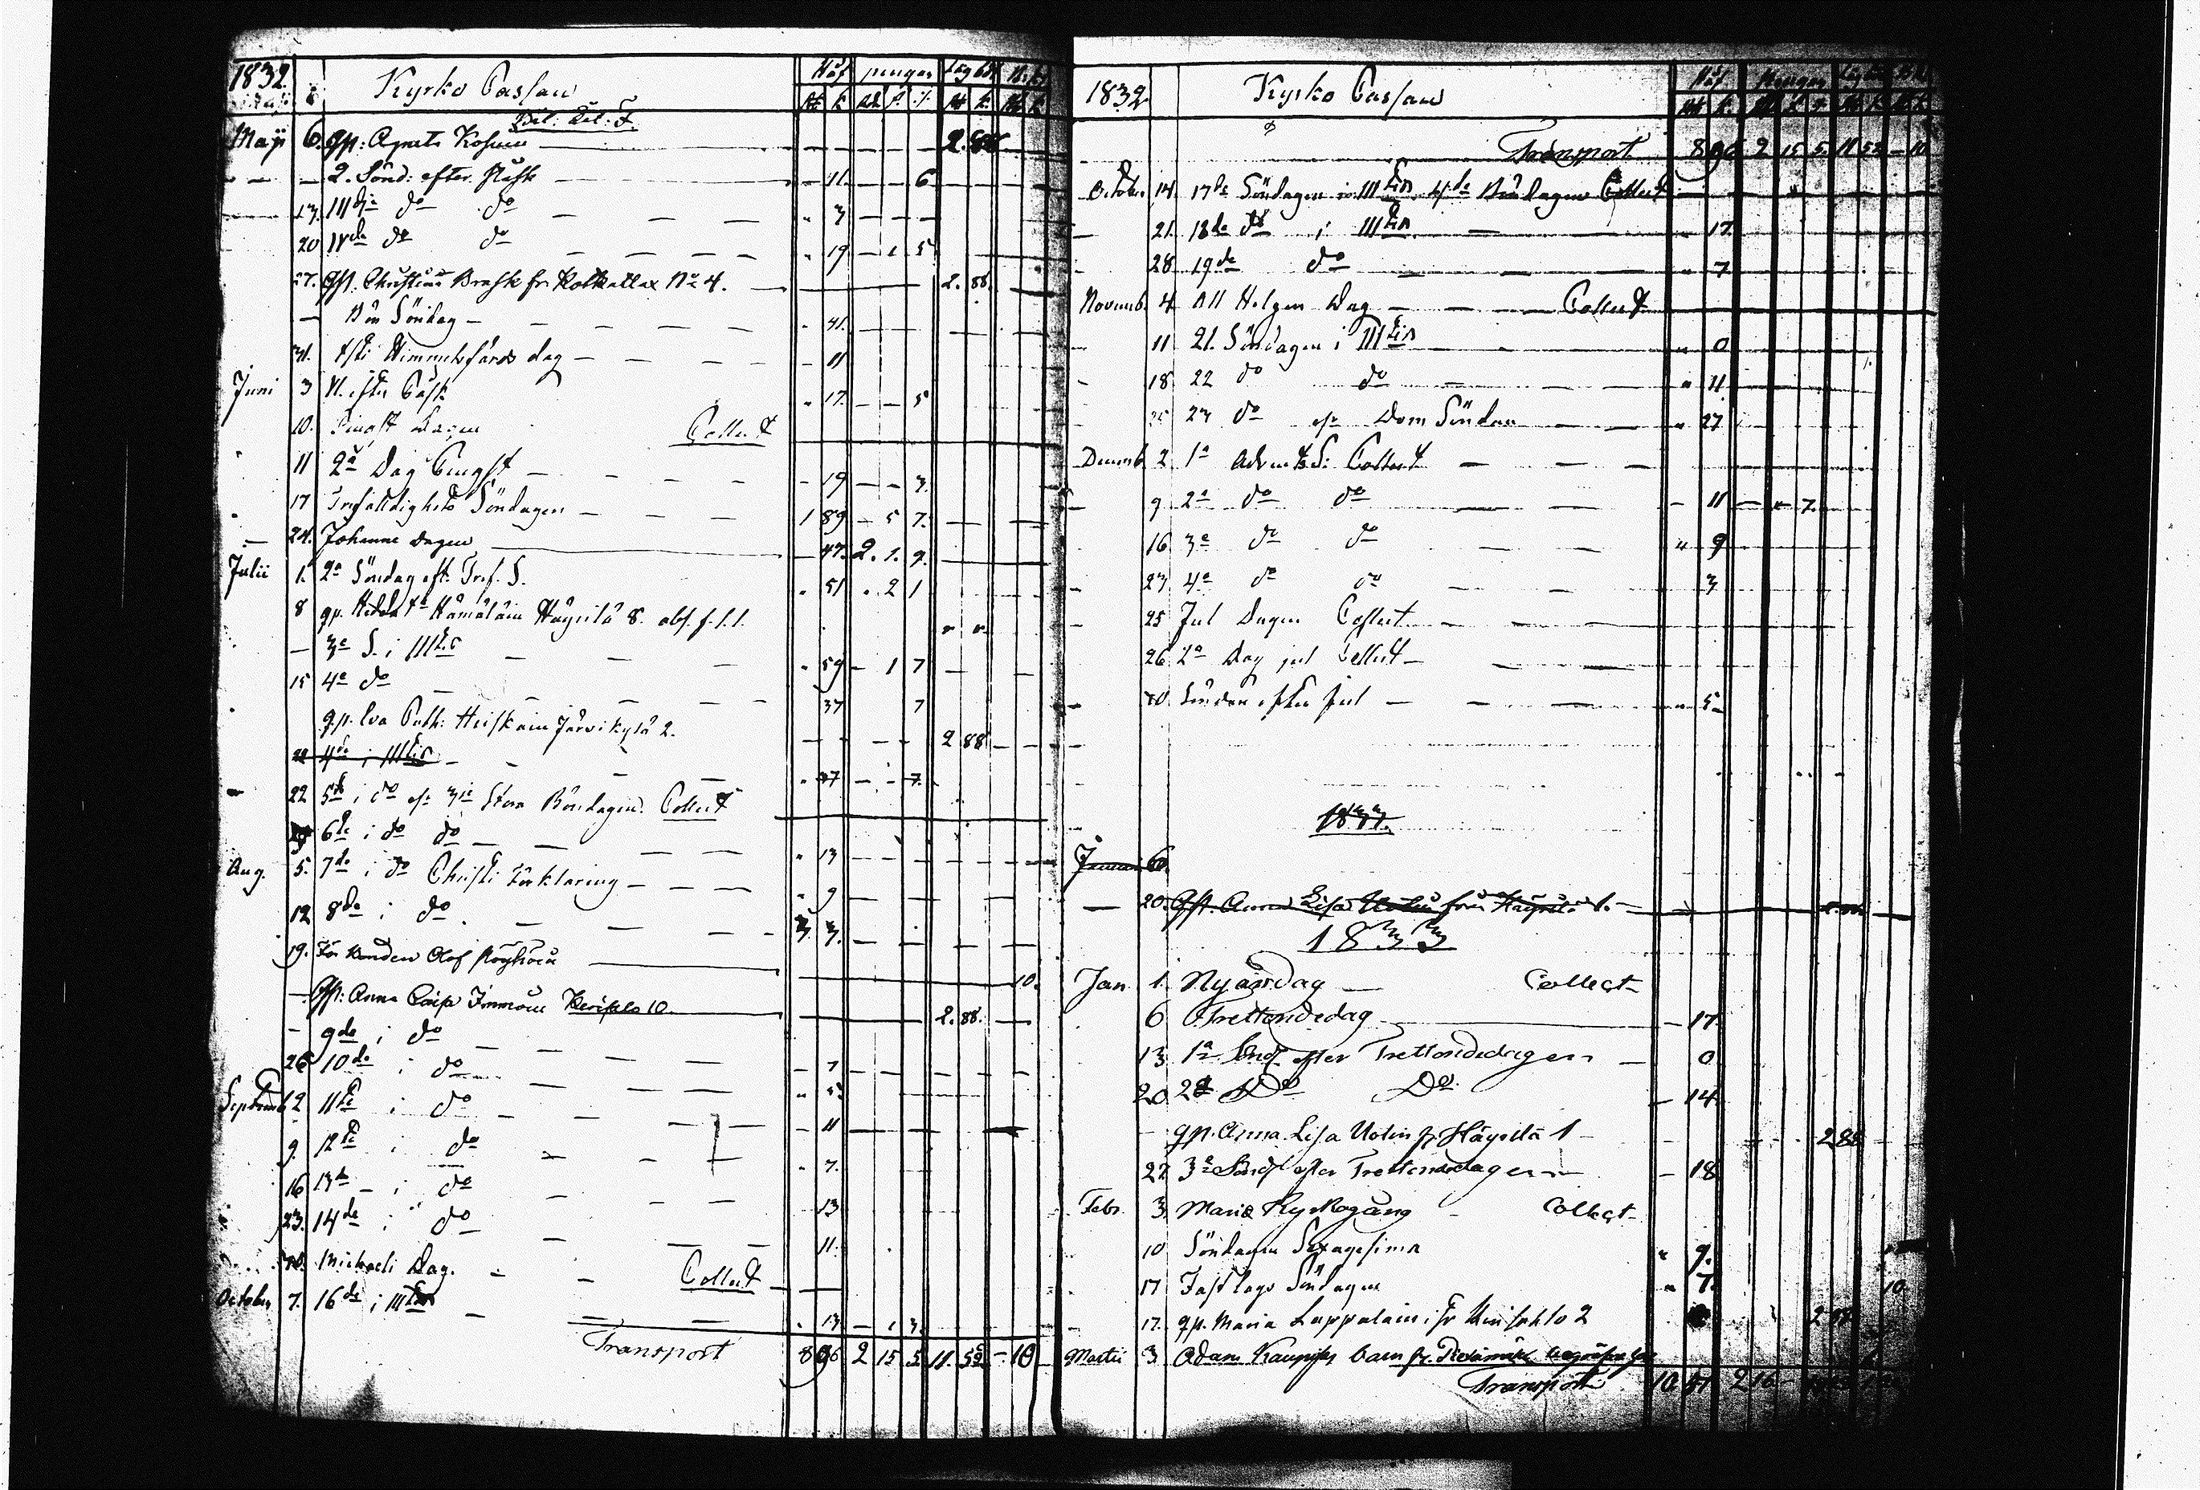 1832. Kyrko Cassan Håf pengar
Maji 6. Gft: Agneta 2. 88
— — — 2. Sönd: efter Påsk — 11. — — 6
13. IIIdje do do — — — 3 — — —
20 IVde do do — — — 19 — 1 5
27. Gft. Christina Brask fr. Kolkallax No 4. — 2. 88.
— Bön Söndag — — — — 41.
31. Xsti Himmelsfärds dag — — — 11
Juni 3 N. efter Påsk 17. — — 5
10. Pingst Dagen Collect
11 2a Dag Pingst — — — — 19 — — 3.
17 Trefaldighets Söndagen — — — 1 89 — 5 7.
24. Johanne Dagen — 47. 2. 1. 9.
Julii 1. 2a Söndag eft. Tref. S. 51 . 2 1
8 gp. Hämäläin Häyrilä 8. obs. f. l. l.
— 3e S. i IIItis — — — 59 — 1 7
15 4e do — — — 37 7
gp. Eva Cath: Heiskain Järvikylä 2. 2 88
22 4de i IIItis — — — 37 — . 7.
22 5te i do o/s 3je Stora Böndagen. Collect
29 6te i do do — — — — 13
Aug. 5. 7de i do Christi Förklaring — — — 9
12 8de i do — — — 3 3.
19. För Bonden Olof — 10.
— Gft: Anna Caisa Immoin 10. 2. 88.
— 9de i do — — —
26 10de i do — — — 7
Septemb 2 11te i do — — — 5
9 12te i do — — — 11
16 13de — i do — — — 7.
23. 14de i do — — — 13
30. Michaeli Dag. — — Collect 11.
October 7. 16de i IIItis — — — 13 — 1 3.
Transport 8 96 2 15 5 11. 52 — 10
1832 Kyrko Cassan Håf Pengar
Transport 8 96 2 15 5. 11 52 — 10
October 14 17de Söndagen i IIItis 4de Böndagen Collect
21. 18de do i IIItis — — 17.
28 19de do — — — 7
Novemb. 4 All Helgon Dag — — — Collect
11 21. Söndagen i IIItis — 0
18 22 do do — — — 11
25 23 do o/s Dom Söndan — — 27
Decemb 2 1a Advents S: Collect — — —
9 2a do do — — — 11 — — 7.
16 3e do do — — — 9
23 4e do do — — — 3
25 Jul Dagen Collect — — —
26 2a Dag jul Collect — — —
30. Söndan efter Jul — — — 5
1833.
Januari 6.
— 20. Gft. Anna Lisa Uotin från Häyrilä 1.
1833
Jan 1. Nyårsdag — Collect
6 Trettondedag — 17.
13 1a Sönd. efter Trettondedagen — 0
20 2a Do Do. — 14.
— gp. Anna Lisa Uotin fr. Häyrilä 1 — 2 88
27 3e Sönd efter Trettondedagen — 18
Febr. 3 Mariæ Kyrkogång Collect
10 Söndagen Sexagesima 9.
17 Fastlags Söndagen 7. 10
17. gp. Maria Lappalain fr. 2 2 88
Martii 3 Adam barn fr.
Transport 10 2 16